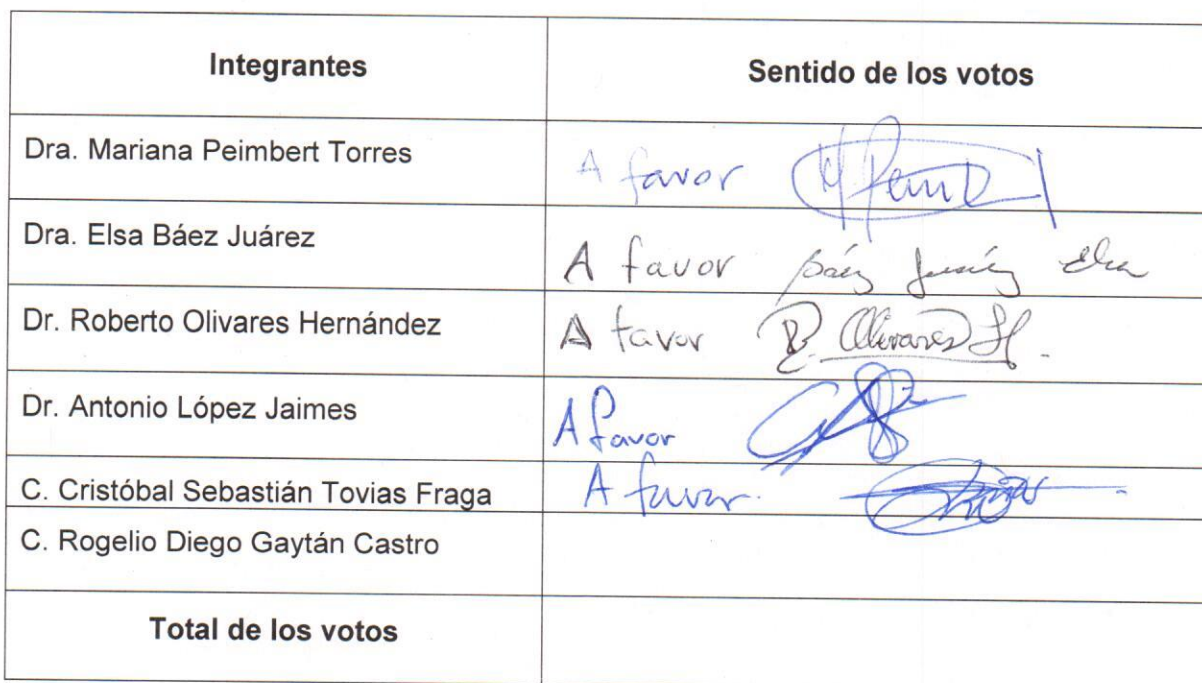 Integrantes Sentido de los votos
Dra. Mariana Peimbert Torres A favor
Dra. Elsa Báez Juárez A favor Báez Juárez Elsa
Dr. Roberto Olivares Hernández A favor R. Olivares H.
Dr. Antonio López Jaimes A favor
C. Cristóbal Sebastián Tovias Fraga A favor.
C. Rogelio Diego Gaytán Castro
Total de los votos